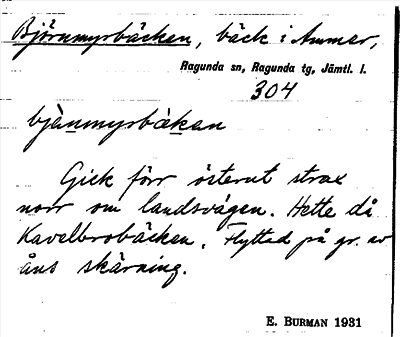 Björnmyrbäcken, bäck i Ammer,
Ragunda sn, Ragunda tg, Jämtl. l.
304
bjènmyrbäkan
Gick förr österut strax
norr om landsvägen. Hette då
Kavelbrobäcken. Flyttad på gr. av
åns skärning.
E. BURMAN 1931